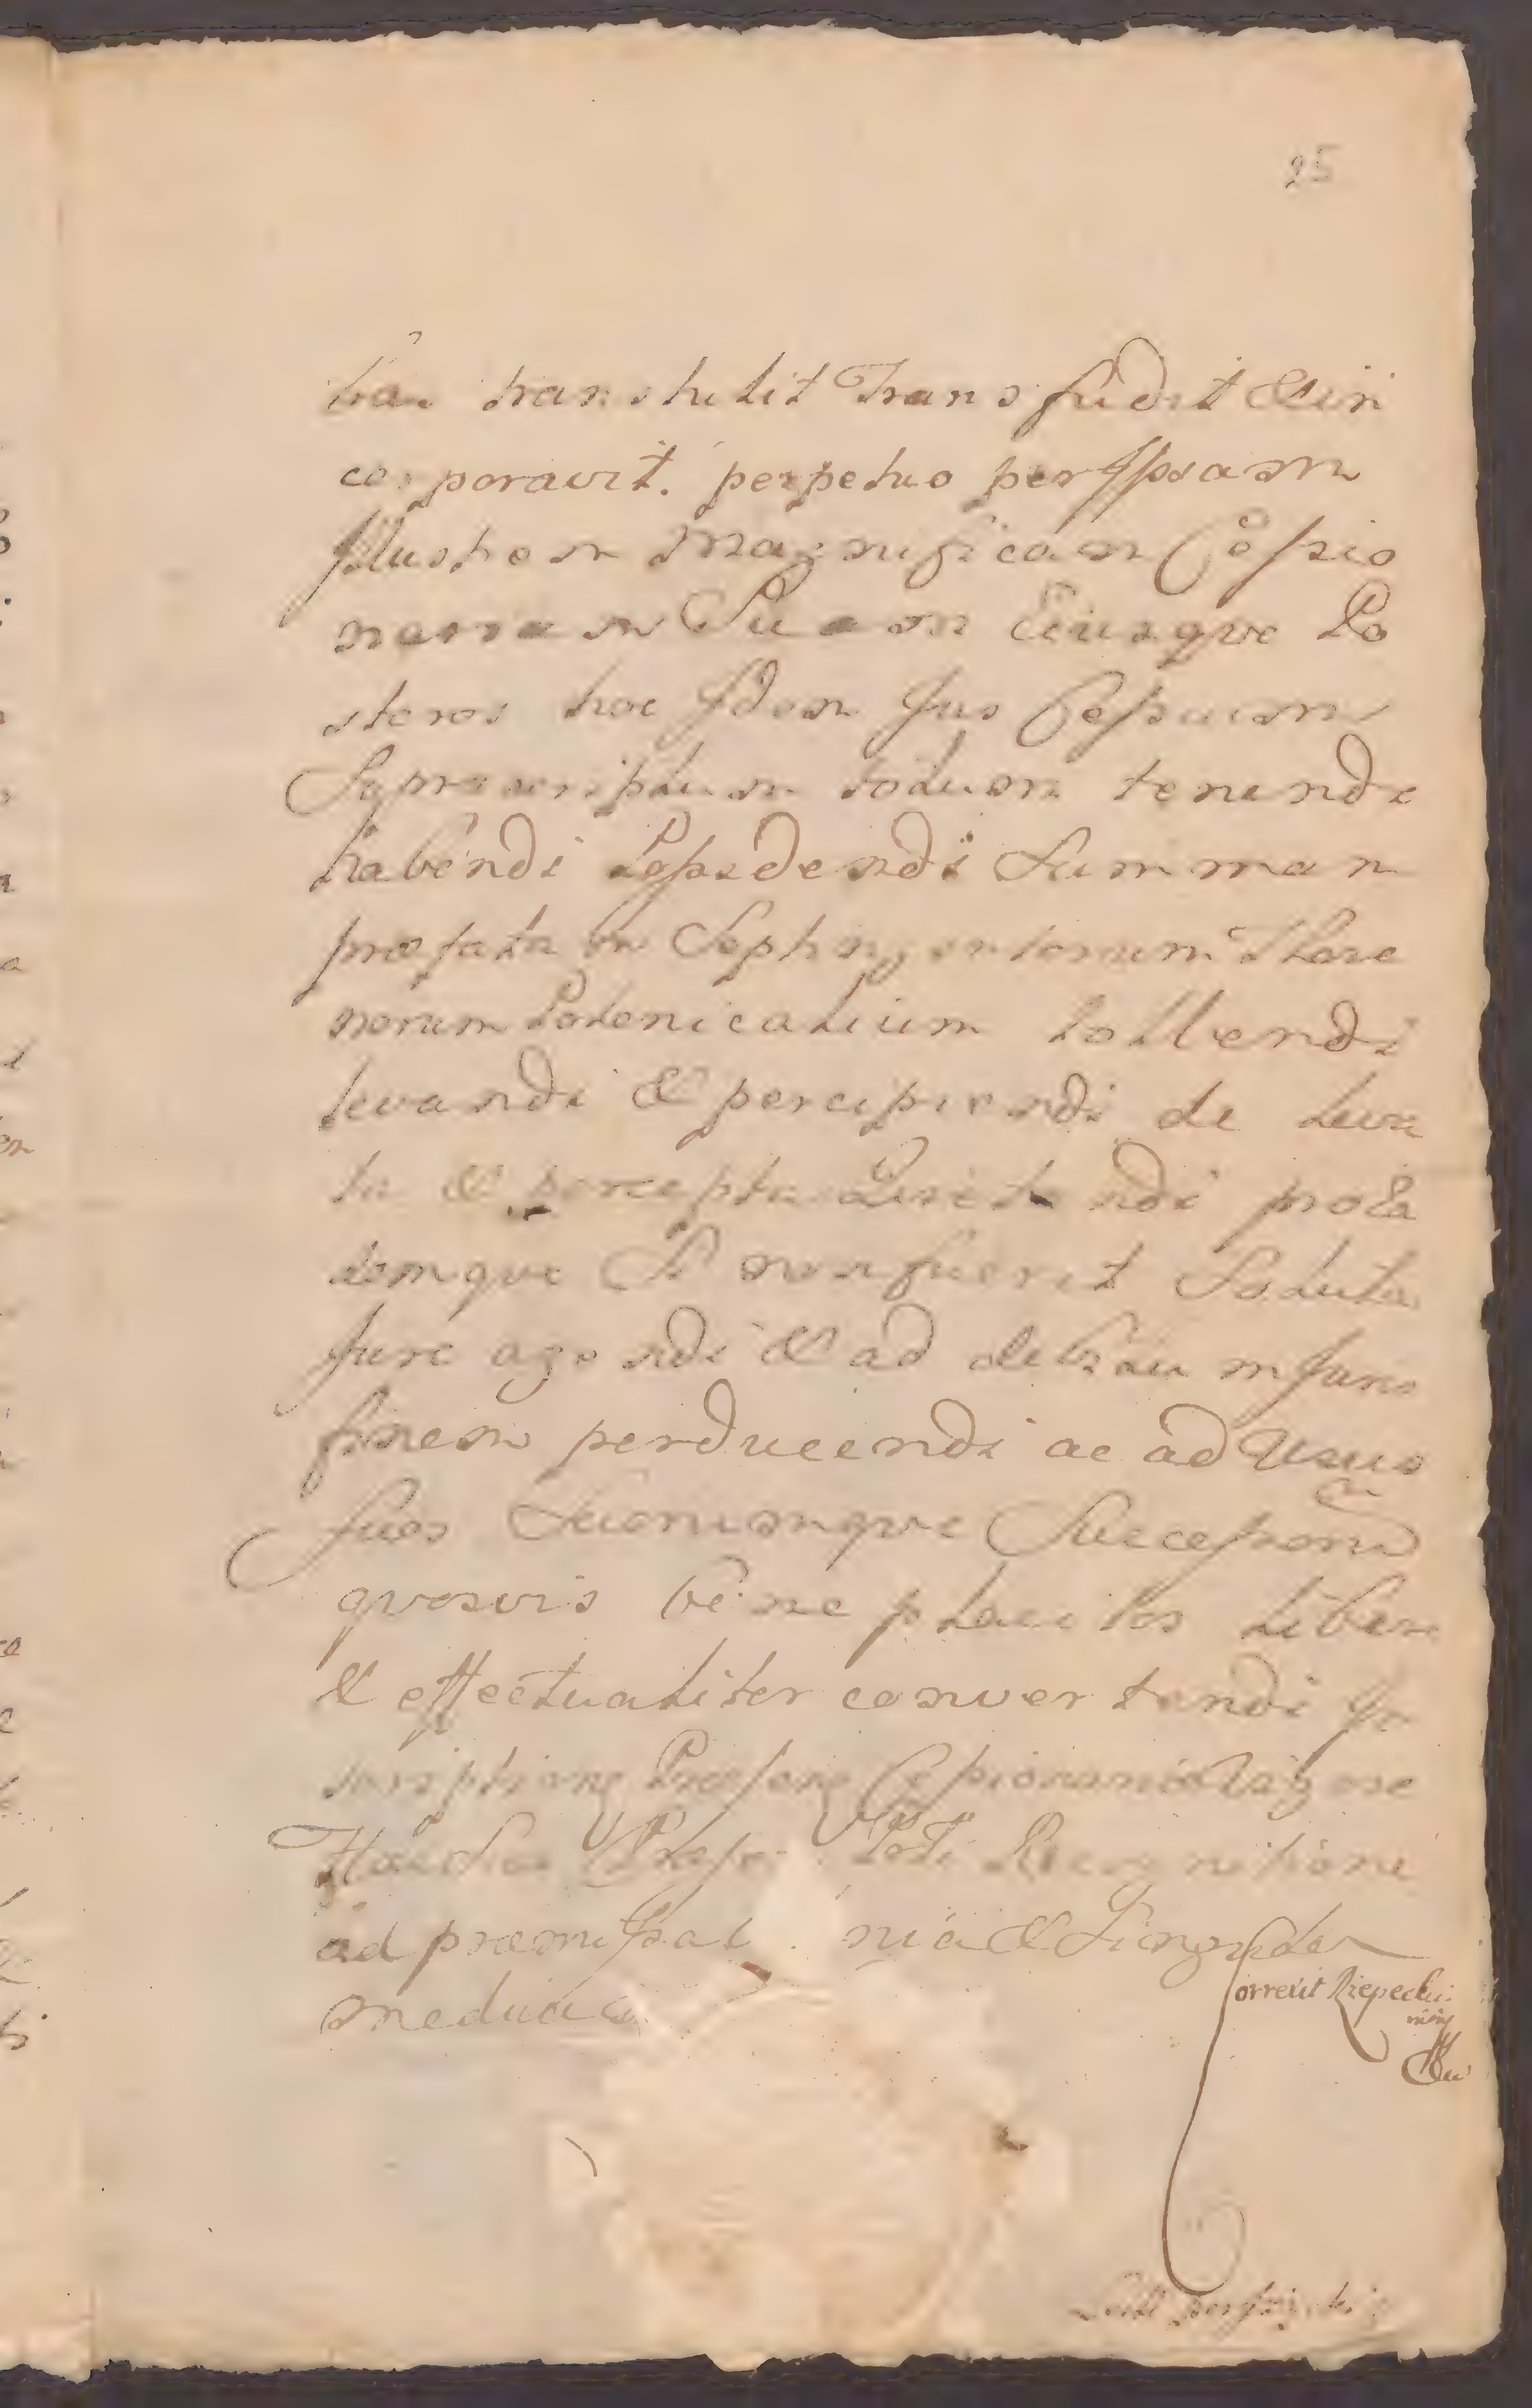 25
transtulit Transfudit & in
corporavit. perpetuo per Ipsam
Illustrem Magnificam Cessio
nariam Suam Eiusque Po
steros hoc Idem Ius Cessum
Suprascriptum totum tenendi
habendi Possidendi Summam
præfatam Septingentorum Flore
norum Polonicalium tollendi
levandi & percipiendi de leva
ta & percepta Quietandi pro Ea
demque Si non fuerit Soluta
Iure agendi & ad debitum Iuris
finem perducendi ac ad Usus
suos Suorumque Successorũ
quosvis bene placitos libere
& effectualiter convertendi In
scriptione Præsens
Recognitione
ad præmissa nia & Singula
mediañ
Correxit
Lectt